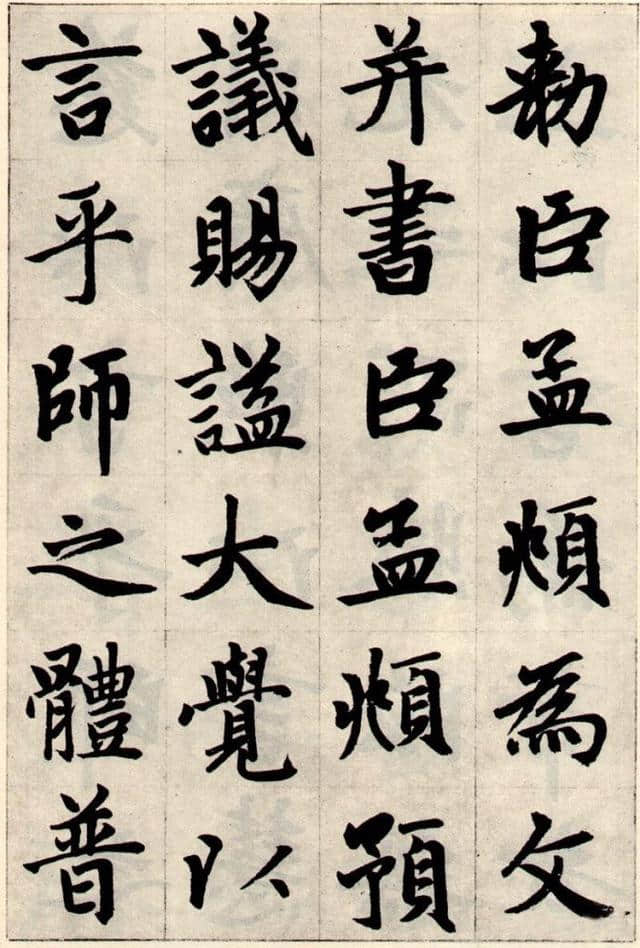 敕臣孟頫為文
并書臣孟頫預
議賜謚大覺以
言乎師之體普